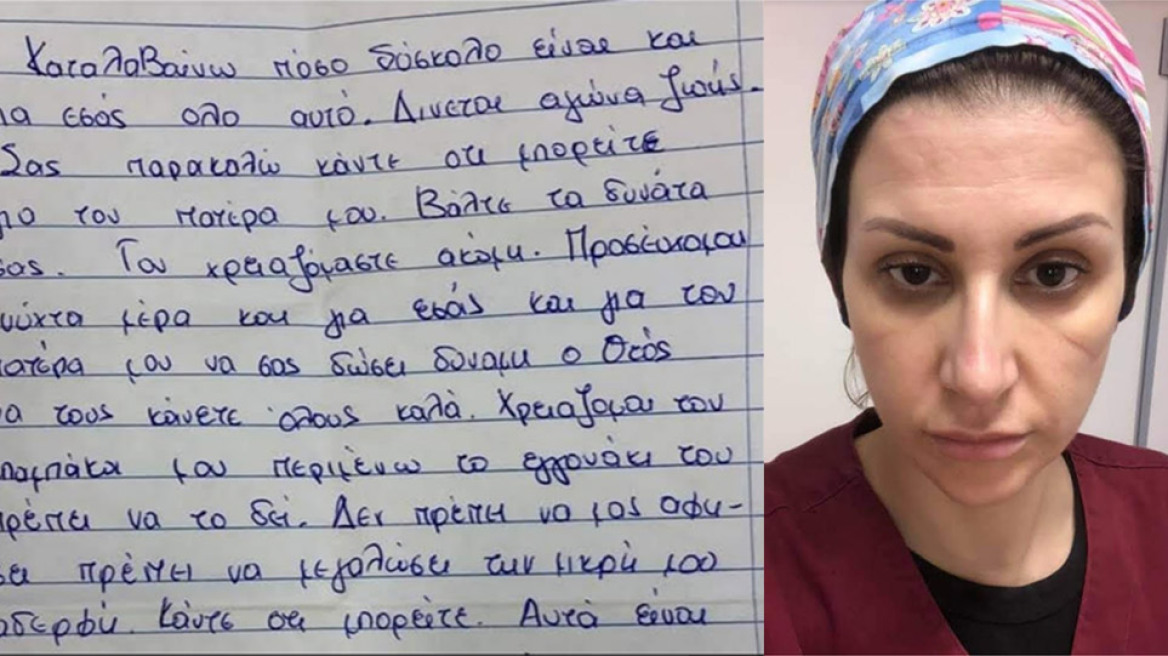 Καταλαβαίνω πόσο δύσκολο είναι και
ια εσάς ολο αυτό. Δινεται αγώνα ζωής.
Σας παρακαλώ κάντε οτι μπορείτε
για τον πατέρα μου. Βάλτε τα δυνάτα
σας. Τον χρειαζόμαστε ακόμη. Προσέυχομαι
νύχτα μέρα και για εσάς και για τον
ατέρα μου να σας δώσει δύναμη ο Θεός
α τους κάνετε όλους καλά. Χρειαζομαι τον
παμπάκα μου περιμένω το εγγονάκι του
ρέπει να το δεί. Δεν πρέπει να μας αφή-
σει πρέπει να μεγαλώσει την μικρή μου
αδερφή. Κάντε οτι μπορείτε. Αυτά είναι